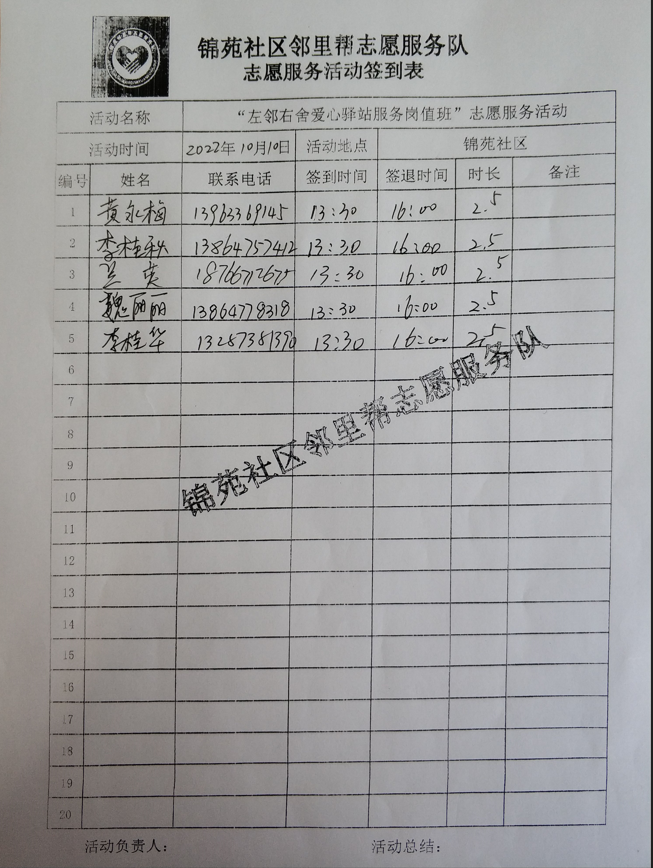 锦苑社区邻里帮志愿服务队
志愿服务活动签到表
活动名称 “左邻右舍爱心驿站服务岗值班”志愿服务活动
活动时间 2022年10月10日 活动地点 锦苑社区
编号 姓名 联系电话 签到时间 签退时间 时长 备注
1 黄永梅 13963369145 13:30 16:00 2.5
2 李桂秋 13864757412 13:30 16:00 2.5
3 兰英 18766712675 13:30 16:00 2.5
4 魏丽丽 13864778318 13:30 16:00 2.5
5 李桂华 13287381390 13:30 16:00 2.5
6
7
8
9
10
11
12
13
14
15
16
17
18
19
20
锦苑社区邻里帮志愿服务队
活动负责人: 活动总结: